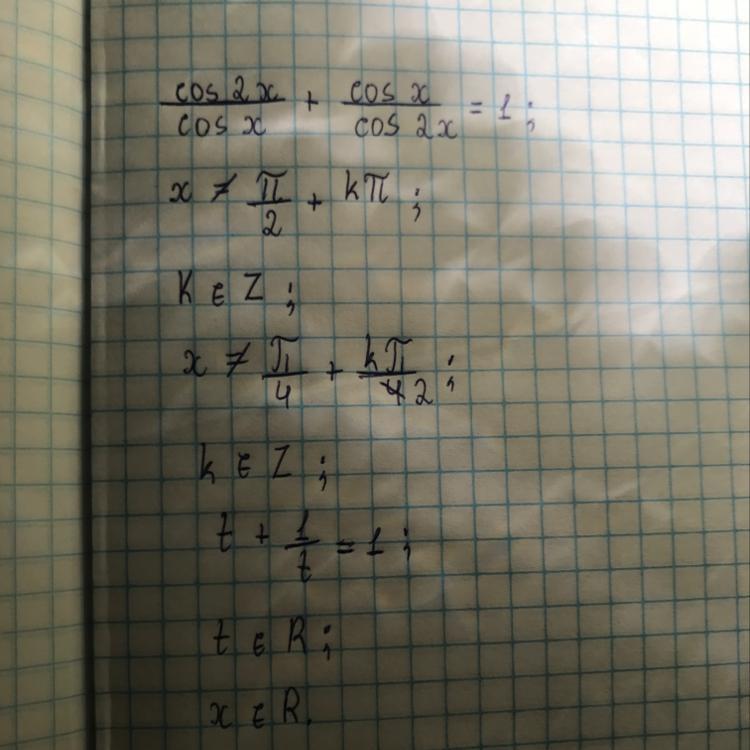 cos 2x / cos x + cos x / cos 2x = 1;
x ≠ π/2 + kπ;
k ∈ Z;
x ≠ π/4 + kπ/2;
k ∈ Z;
t + 1/t = 1;
t ∈ R;
x ∈ R.